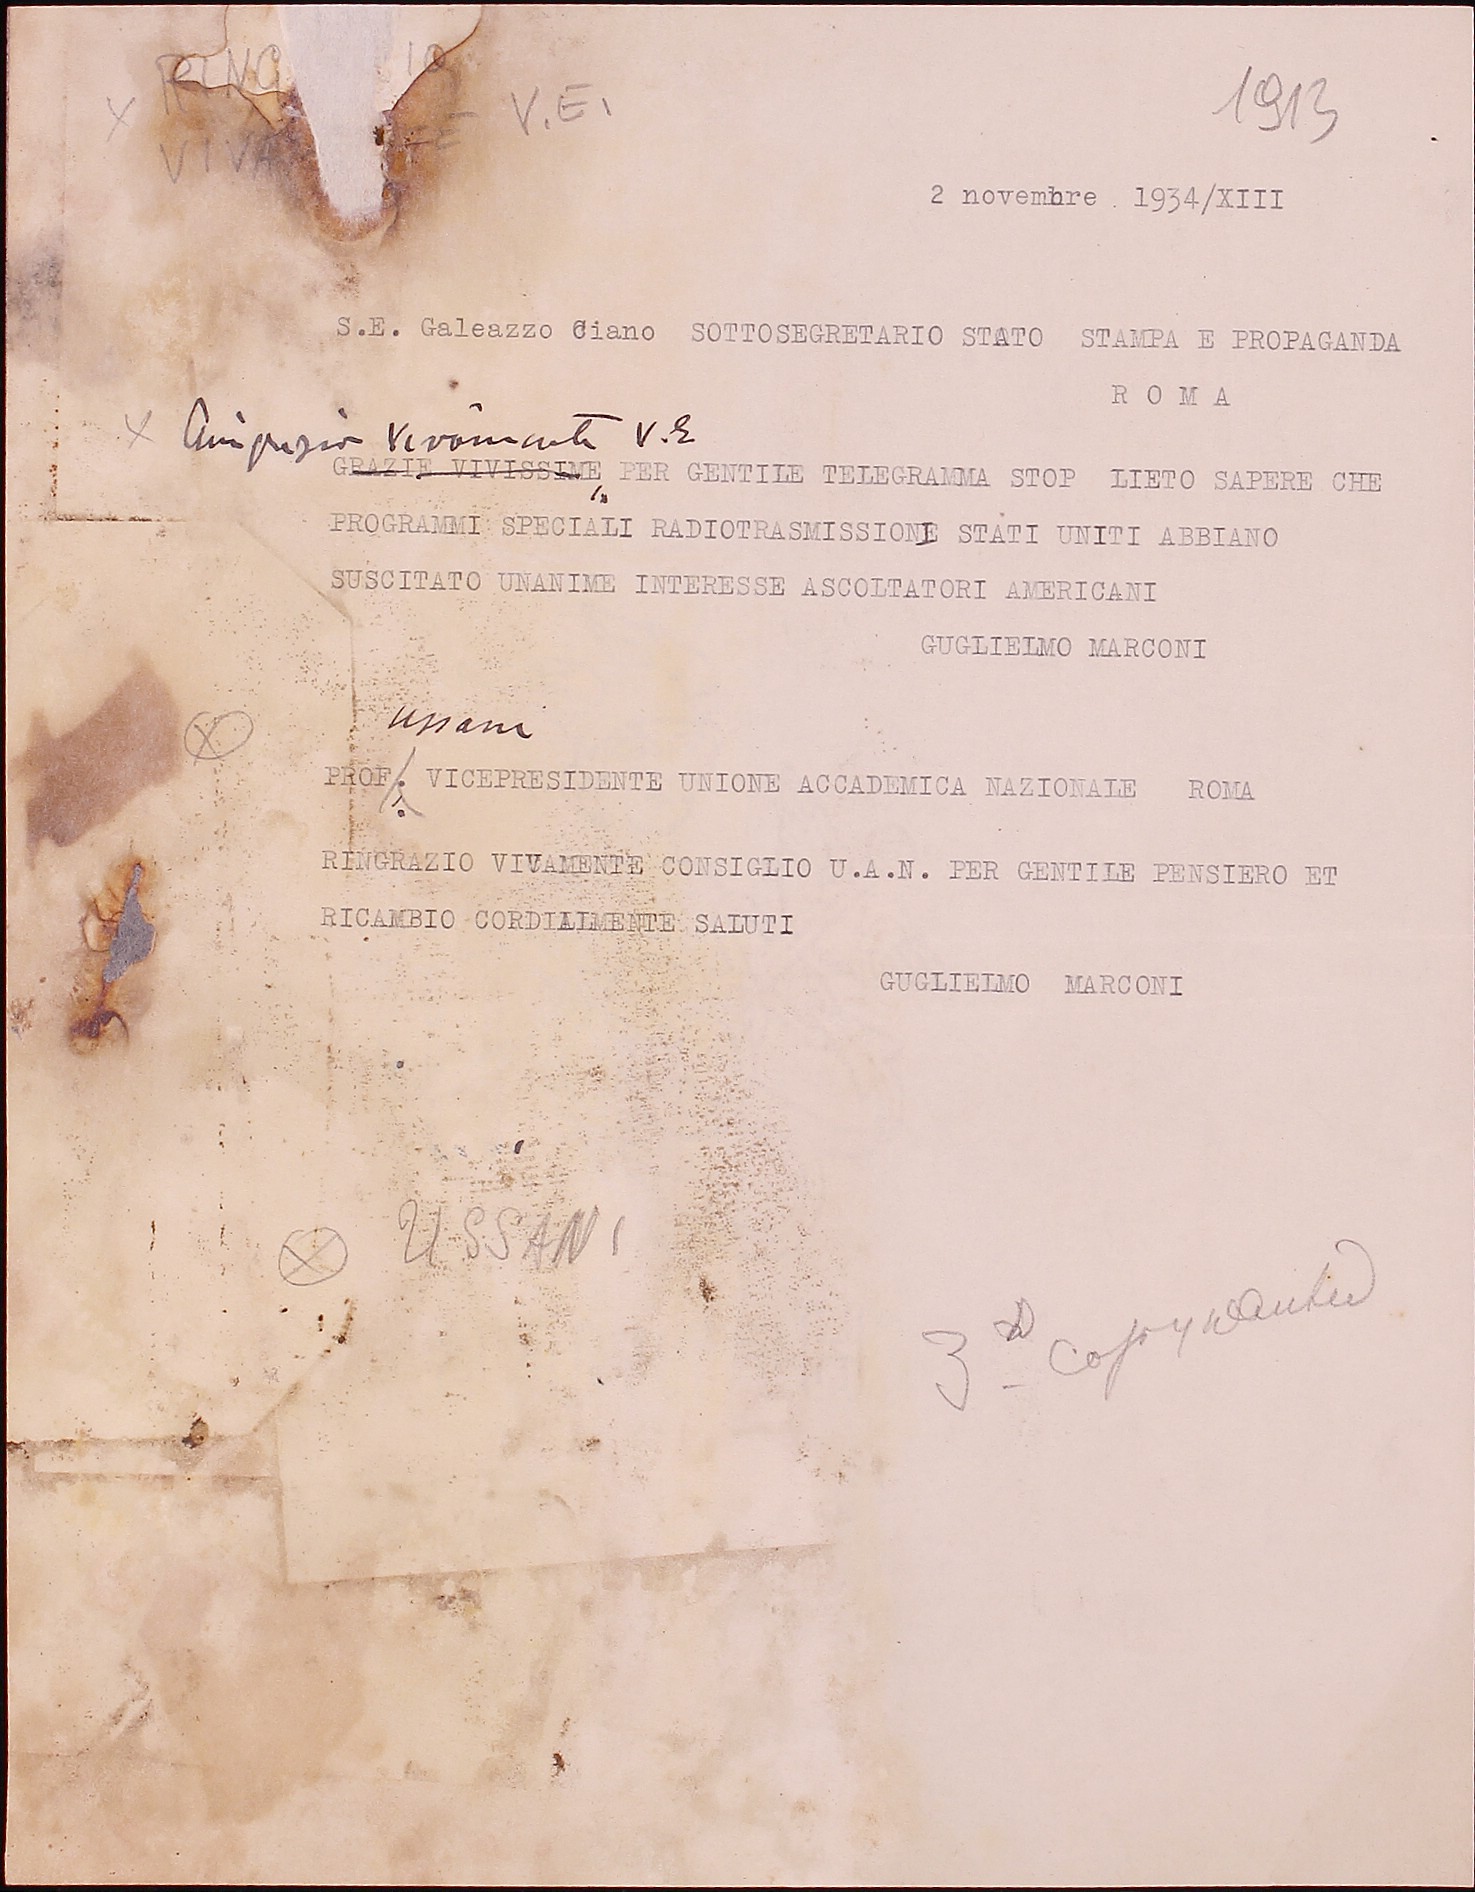 1913
× RING IO
VIVA TE V.E.
2 novembre . 1934/XIII
S.E. Galeazzo Ciano SOTTOSEGRETARIO STATO STAMPA E PROPAGANDA
R O M A
× Ringrazio vivamente V.E
GRAZIE VIVISSIME PER GENTILE TELEGRAMMA STOP LIETO SAPERE CHE
PROGRAMMI SPECIALI RADIOTRASMISSIONI STATI UNITI ABBIANO
SUSCITATO UNANIME INTERESSE ASCOLTATORI AMERICANI
GUGLIELMO MARCONI
Ussani
PROF. VICEPRESIDENTE UNIONE ACCADEMICA NAZIONALE ROMA
RINGRAZIO VIVAMENTE CONSIGLIO U.A.N. PER GENTILE PENSIERO ET
RICAMBIO CORDIALMENTE SALUTI
GUGLIELMO MARCONI
USSANI
3d copy wanted